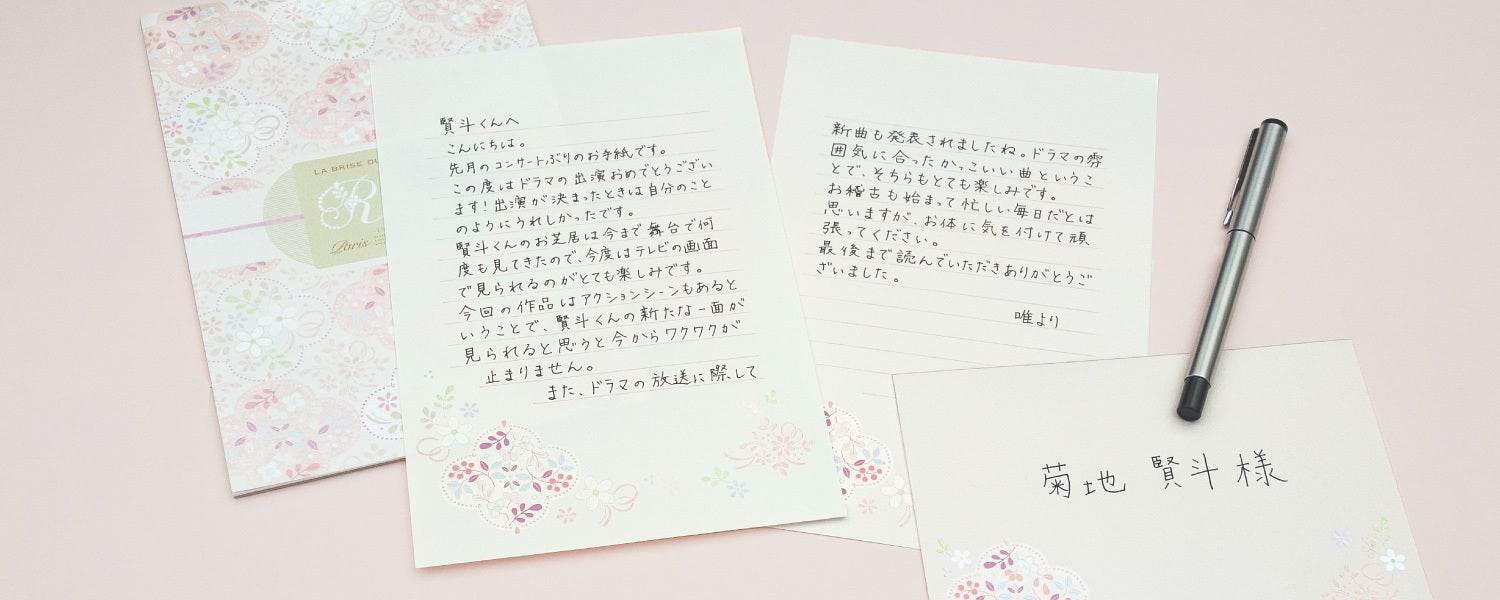 LA BRISE DU
R
Paris
賢斗くんへ
こんにちは。
先月のコンサートぶりのお手紙です。
この度はドラマの出演おめでとうござい
ます!出演が決まったときは自分のこと
のようにうれしかったです。
賢斗くんのお芝居は今まで舞台で何
度も見てきたので、今度はテレビの画面
で見られるのがとても楽しみです。
今回の作品はアクションシーンもあると
いうことで、賢斗くんの新たな一面が
見られると思うと今からワクワクが
止まりません。
また、ドラマの放送に際して
新曲も発表されましたね。ドラマの雰
囲気に合ったかっこいい曲というこ
とで、そちらもとても楽しみです。
お稽古も始まって忙しい毎日だとは
思いますが、お体に気を付けて頑
張ってください。
最後まで読んでいただきありがとうご
ざいました。
唯より
菊地 賢斗 様